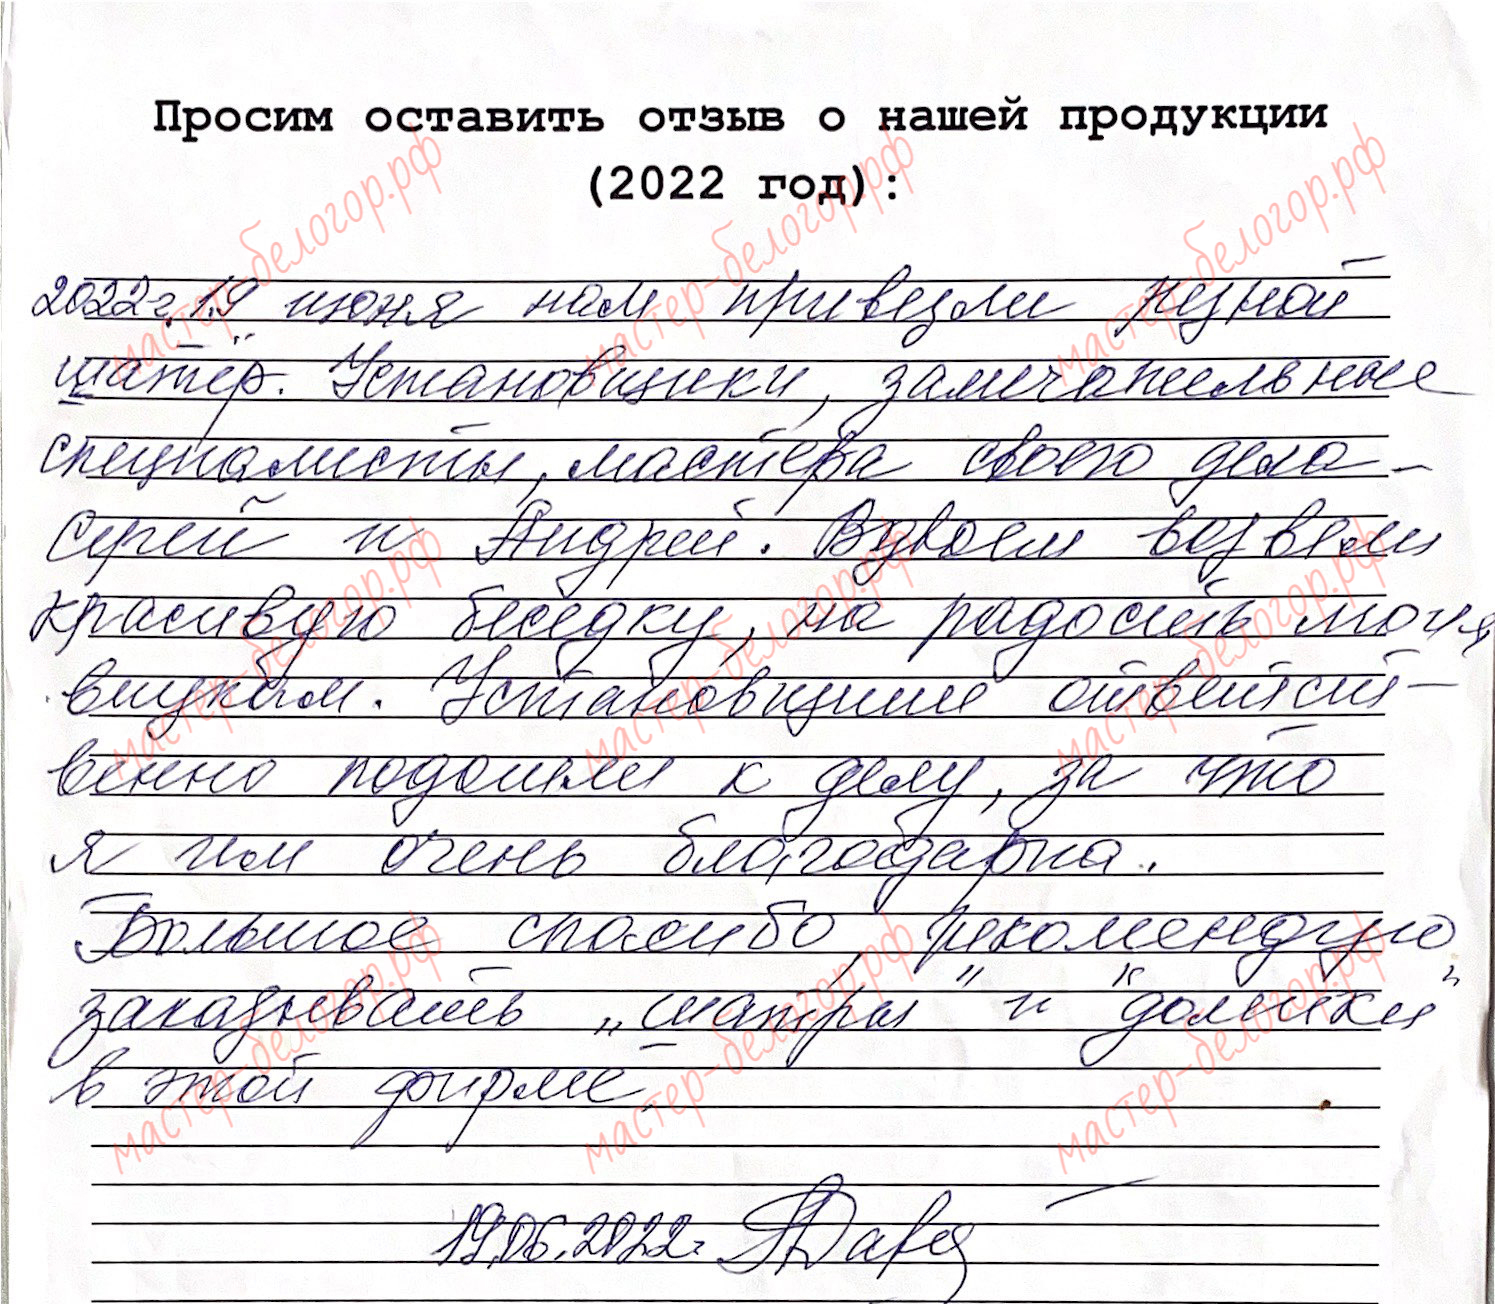 Просим оставить отзыв о нашей продукции
(2022 год):
2022 г. 19 июня нам привезли резной
шатёр. Установщики, замечательные
специалисты, мастера своего дела -
Сергей и Андрей. Вдвоем возвели
красивую беседку, на радость моим
внукам. Установщики ответст-
венно подошли к делу, за что
я им очень благодарна.
Большое спасибо, рекомендую
заказывать „шатры" и "домики"
в этой фирме.
19.06.2022г.
мастер-белогор.рф